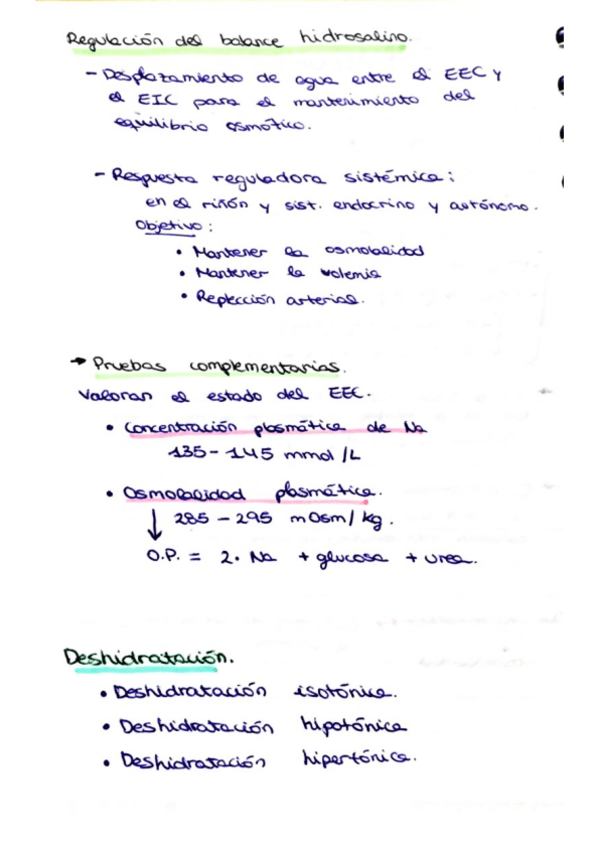 Regulación del balance hidrosalino.
- Desplazamiento de agua entre el EEC y
el EIC para el mantenimiento del
equilibrio osmótico.
- Respuesta reguladora sistémica:
en el riñón y sist. endocrino y autónomo.
Objetivo:
• Mantener la osmolalidad
• Mantener la volemia
• Replección arterial.
→ Pruebas complementarias.
Valoran el estado del EEC.
• Concentración plasmática de Na
135 - 145 mmol /L
• Osmolalidad plasmática.
↓ 285 - 295 mOsm/kg.
O.P. = 2. Na + glucosa + urea.
Deshidratación.
• Deshidratación isotónica.
• Deshidratación hipotónica
• Deshidratación hipertónica.